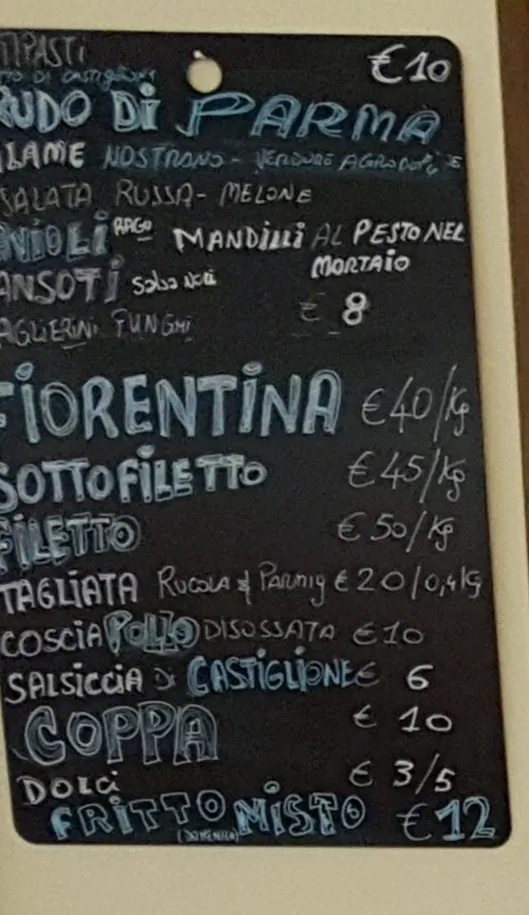 TIPASTI €10
TTO DI CASTIGLIONE
RUDO Di PARMA
LAME NOSTRANO - VERDURE AGRODOLCE
SALATA RUSSA - MELONE
NIOLi RAGO MANDilli AL PESTO NEL
MORTAIO
ANSOTi Salsa Noci
€ 8
AGLIERINI FUNGHI
FiORENTiNA €40/Kg
SOTTOFiLETTO €45/Kg
FiLETTO €50/Kg
TAGLiATA RUCOLA & PARMIG €20/0,4Kg
COSCiA POLLO DISOSSATA €10
SALSICCiA Di CASTIGLIONE € 6
COPPA € 10
DOLCi € 3/5
FRiTTO MiSTO €12
(DOMENICA)